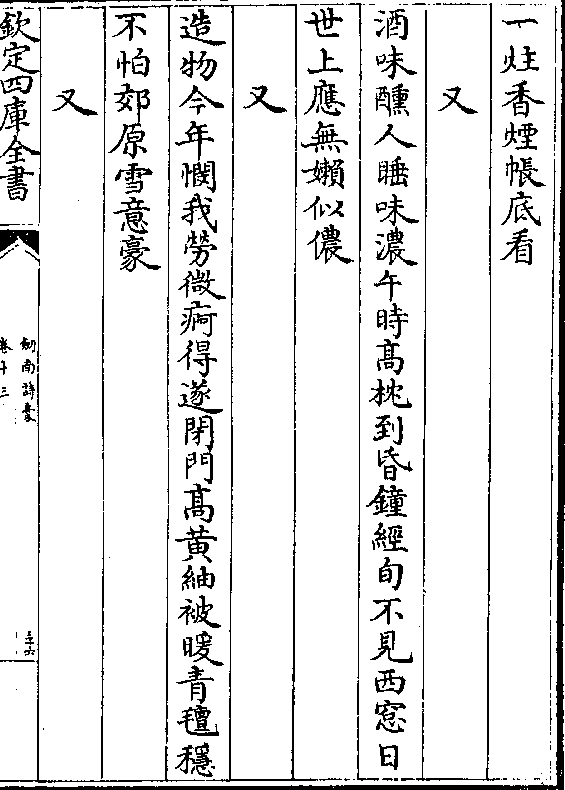 一炷香煙帳底看
又
酒味醺人睡味濃午時髙枕到昏鐘經旬不見西窓日
世上應無嬾似儂
又
造物今年憫我勞微痾得遂閉門髙黃紬被暖青氊穩
不怕郊原雪意豪
又
欽定四庫全書
劔南詩藁
卷十三